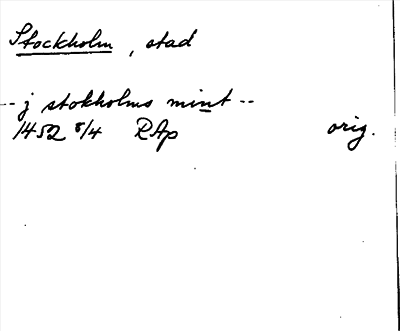 Stockholm, stad
-- j stokholms mint --
1452 8/4 RAp orig.